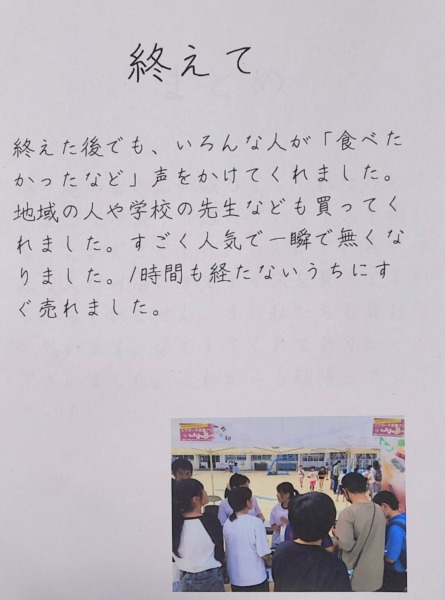 終えて
終えた後でも、いろんな人が「食べた
かったなど」声をかけてくれました。
地域の人や学校の先生なども買ってく
れました。すごく人気で一瞬で無くな
りました。1時間も経たないうちにす
ぐ売れました。